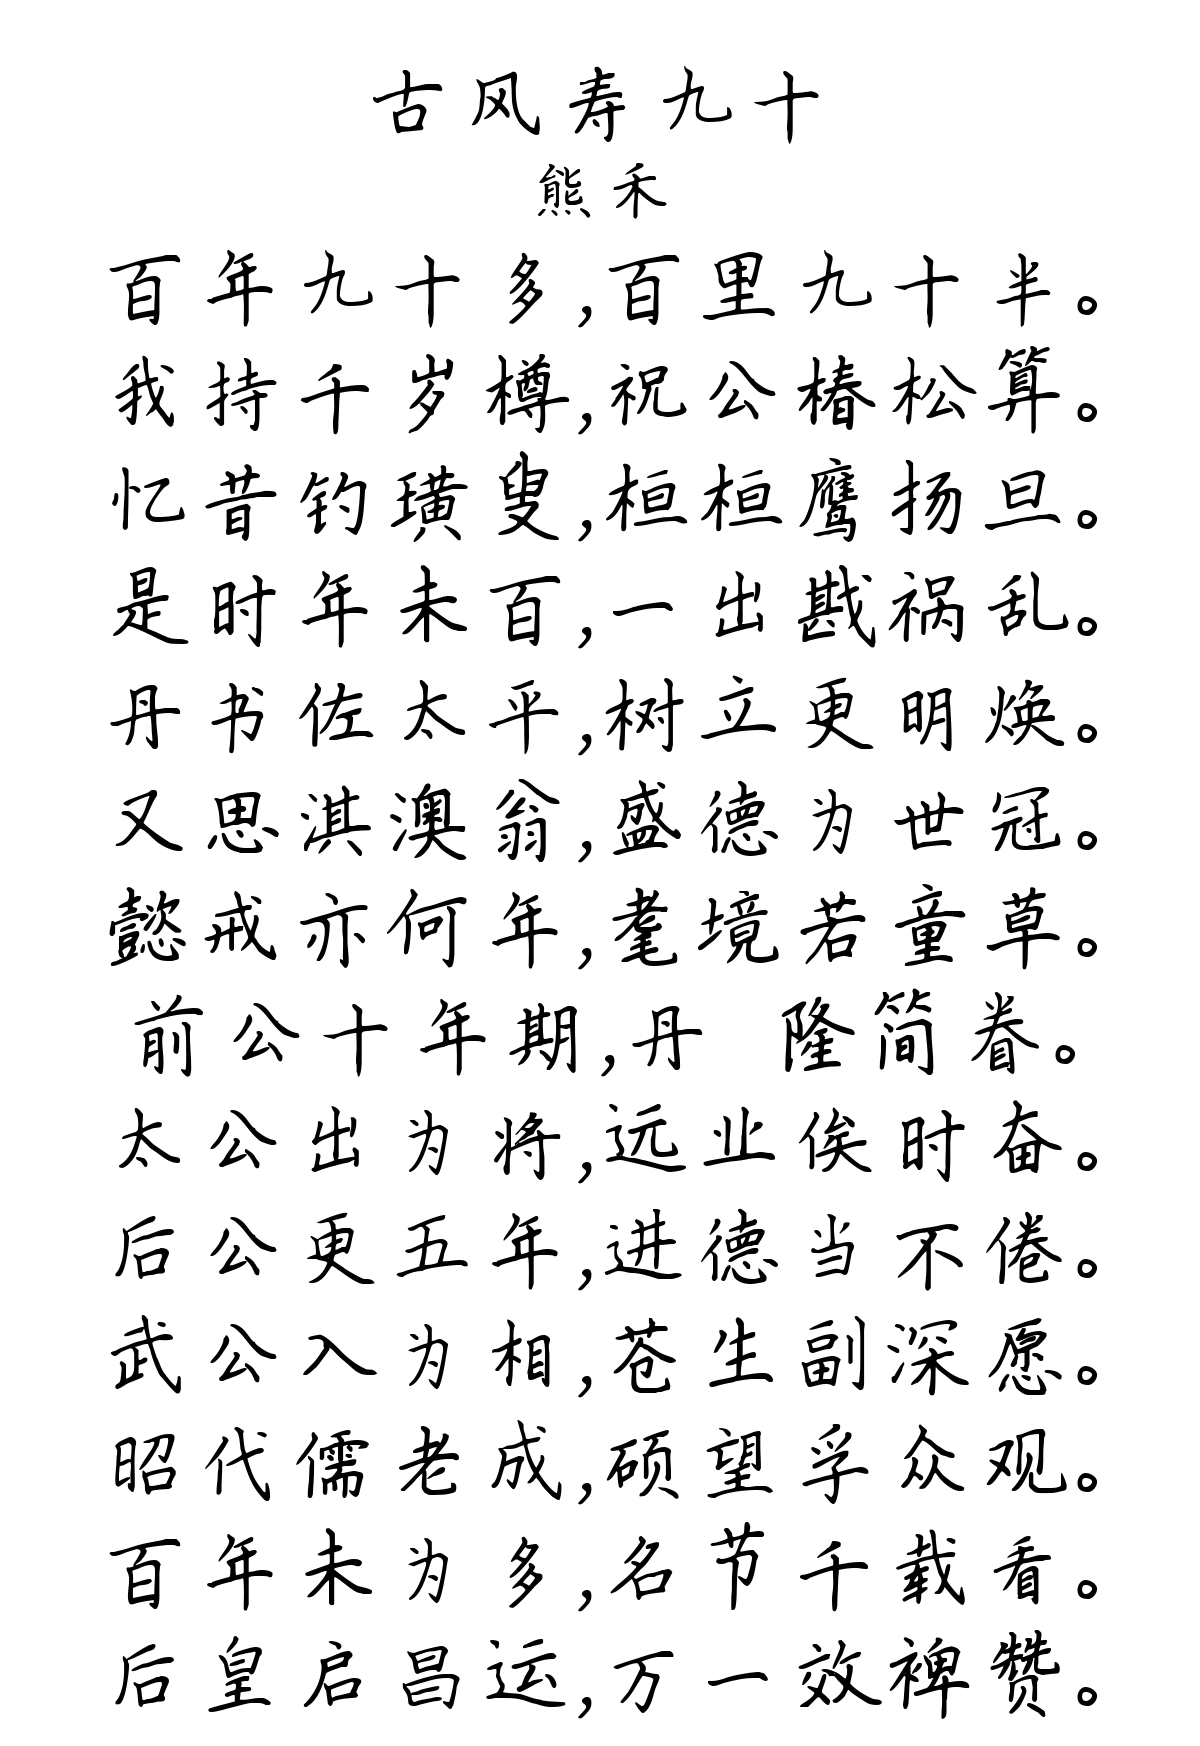 古风寿九十
熊禾
百年九十多,百里九十半。
我持千岁樽,祝公椿松算。
忆昔钓璜叟,桓桓鹰扬旦。
是时年未百,一出戡祸乱。
丹书佐太平,树立更明焕。
又思淇澳翁,盛德为世冠。
懿戒亦何年,耄境若童草。
前公十年期,丹 隆简眷。
太公出为将,远业俟时奋。
后公更五年,进德当不倦。
武公入为相,苍生副深愿。
昭代儒老成,硕望孚众观。
百年未为多,名节千载看。
后皇启昌运,万一效裨赞。